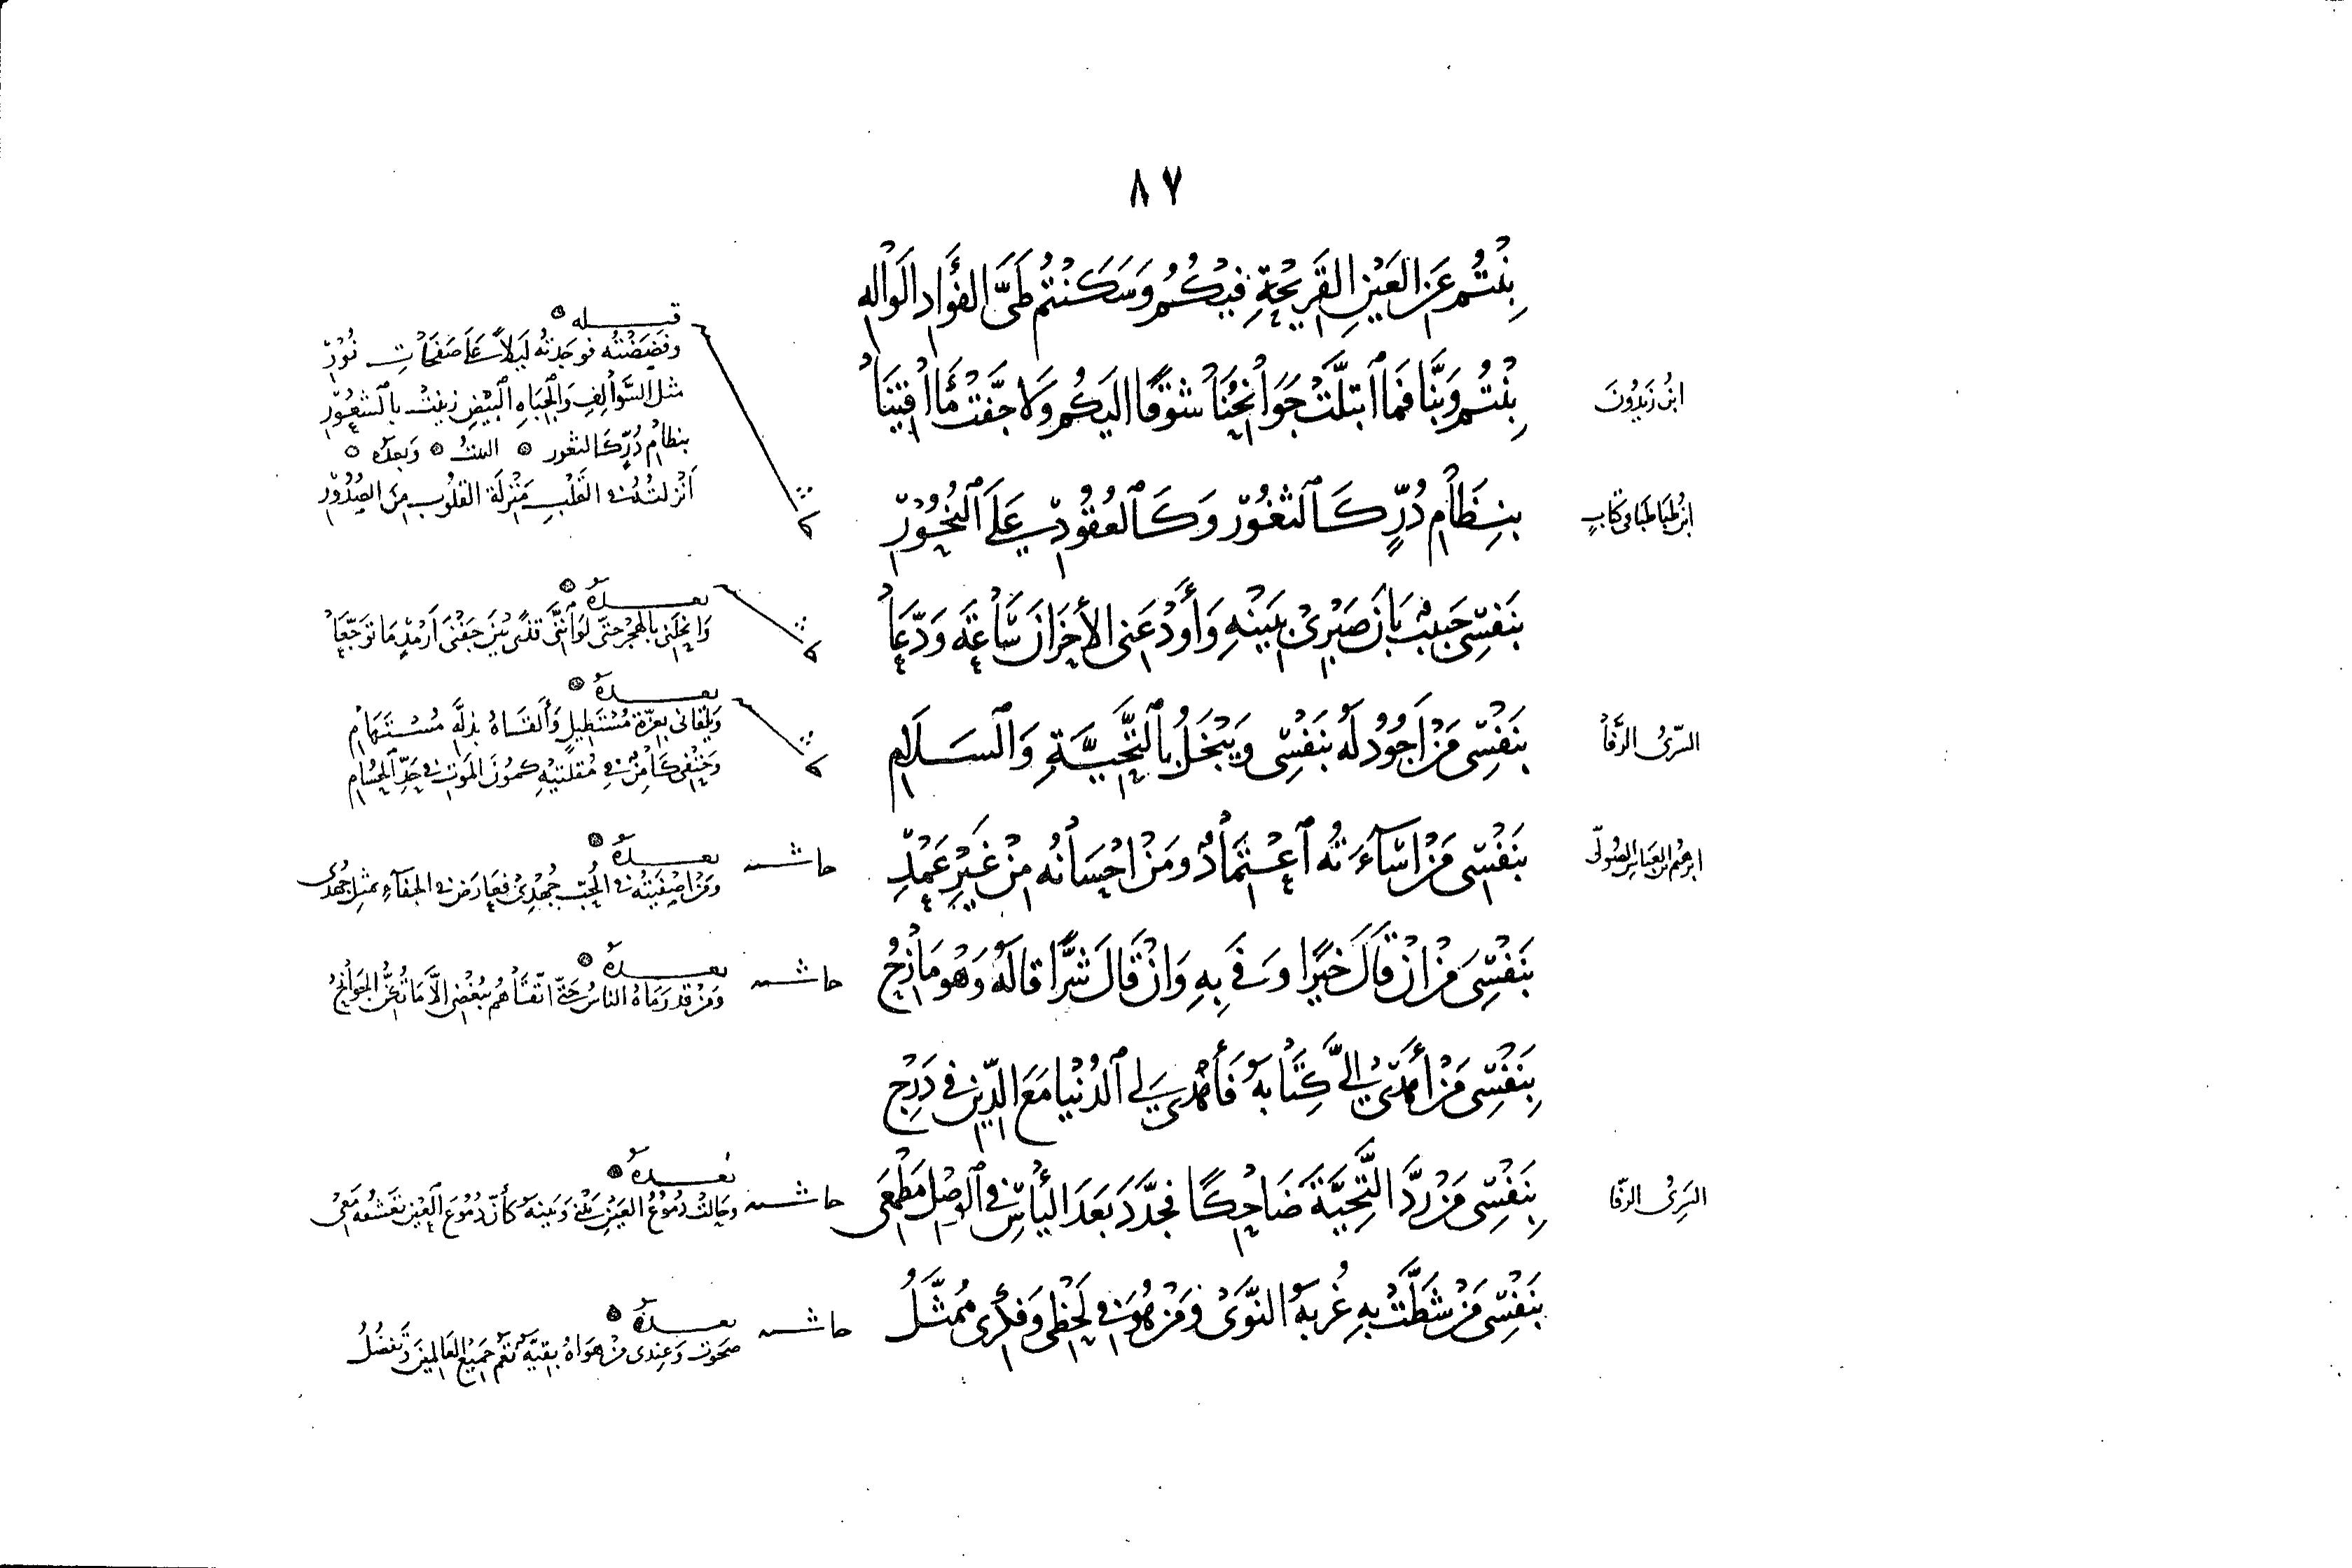 ٨٧
بِنْتُم عَنِ العَيْنِ القَرِيْحَةِ فِيْكُمُ وَسَكَنْتُم طَيَّ الفُؤَادِ الوَالِهِ
ابنُ زَيدُونَ
بِنْتُم وَبِنَّا فَمَا ابْتَلَّتْ جَوَانِحُنَا شَوْقًا اليكُم وَلا جَفَّتْ مَآقِيْنَا
ابنُ طَبَاطَبَا فى كتابٍ
بنِظَامِ دُرٍّ كَالثغُوْرِ وَكَالعُقُوْدِ عَلَى النُحُوْرِ
قبله
وفَضَضْتُه فوجَدتُه لَيلاً عَلَى صَفَحَاتِ نُوْرِ
مثل السَّوَالِفِ وَالجِبَاهِ البيْضِ زينتْ بالشعُوْرِ
بنظامِ دُرٍّ كَالثغور البيتُ وَبعدَهُ
أنْزلتُهُ فى القَلْبِ مَنْزِلَةَ القلُوبِ مِنَ الصُدُوْرِ
بنَفسِى حَبيبٌ بَانَ صَبْرِىْ بِبَيْنِهِ وَأَوْدَعَنِى الأحْزَانَ سَاعَةَ وَدَّعَا
بعدهُ
وَانحَلَنِى بالهَجْرِ حتى لوَ انَّنِى قذًى بَيْنَ جَفْنَى ارْمَدٍ مَا توَجَّعَا
السَّرىُ الرَّفَّا
بنَفْسِى مَنْ اجُوْدُ لَهُ بنَفْسِى وَيَبْخَلُ بِالتَّحِيَّةِ وَالسَلَامِ
بعدهُ
وَيَلقانى بعِزَّةِ مُسْتَطِيلٍ وَأَلقَاهُ بذلَّةِ مُسْتَهَامِ
وَحَتْفِى كَامِنٌ فى مُقلَتَيْهِ كمُونَ المَوتِ فى حَدِّ الحُسَامِ
ابرهيم بن العَباسِ الصُولى
بنَفْسِى مَنْ اسَآءَتُه اعْتِمَادٌ ومَنْ احْسَانُه مِنْ غَيْرِ عَمْدِ
حاشيه
بعدهُ
ومَنْ اصْفَيتُهُ فى الحُبِّ جُهْدِىْ فعَارَضَ فى الجفآءِ بمثلِ جُهْدِى
بنَفْسِىَ مَنْ انْ قَالَ خَيْرًا وَفَى بِهِ وَانْ قَالَ شَرًّا قالَهُ وَهُوَ مَازِحُ
حاشيه
بعدهُ
ومَنْ قد رَمَاهُ الناسُ حَتَّى اتقاهُم ببُغْضِى الاَّ مَا تُجِنُّ الجَوَانِحُ
بِنَفْسِى مَنْ أَهْدَىْ الىَّ كِتَابهُ فَأَهْدَى لِى الدُنْيَا مَعَ الدِّينِ فى دَرْجِ
السَرِىُ الرفَّا
بِنَفْسِى مَنْ رَدَّ التَّحِيَّةَ ضَاحِكًا فجَدَّدَ بَعْدَ اليأْسِ فى الوَصْلِ مَطْمَعِى
حاشيه
بعدهُ
وحَالتْ دُمُوْعُ العَيْنِ بَيْنِى وَبَينهُ كأنَّ دُمُوْعَ العَيْنِ تعْشقُه مَعِى
بنَفْسِى مَنْ شَطَّتْ بِهِ غُربةُ النَّوَى وَمَنْ هُوَ فى لَحْظِى وَفِكْرِى مُمثَّلُ
حاشيه
بعدهُ
صَحَوتُ وَعِندى مِنْ هَوَاهُ بقيَّةٌ تَعُمُّ جَمِيْعَ العَالميْنَ وَتَفضُلُ